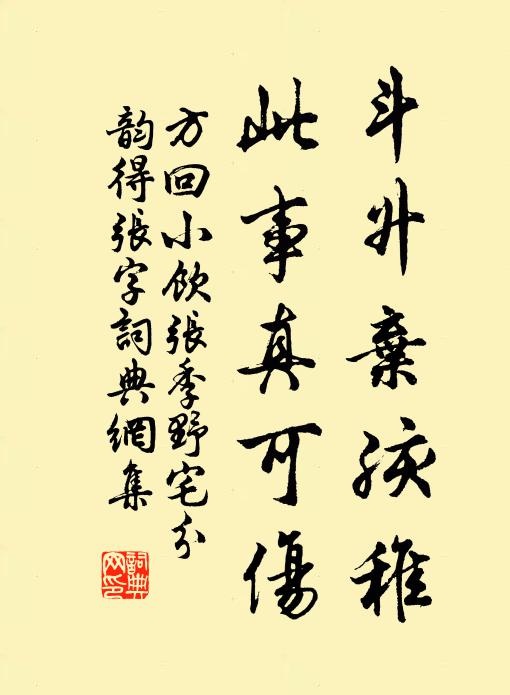 斗升棄孩稚
此事真可傷
方回小飲張季野宅分
韵得張字詞典網集
詞典網印